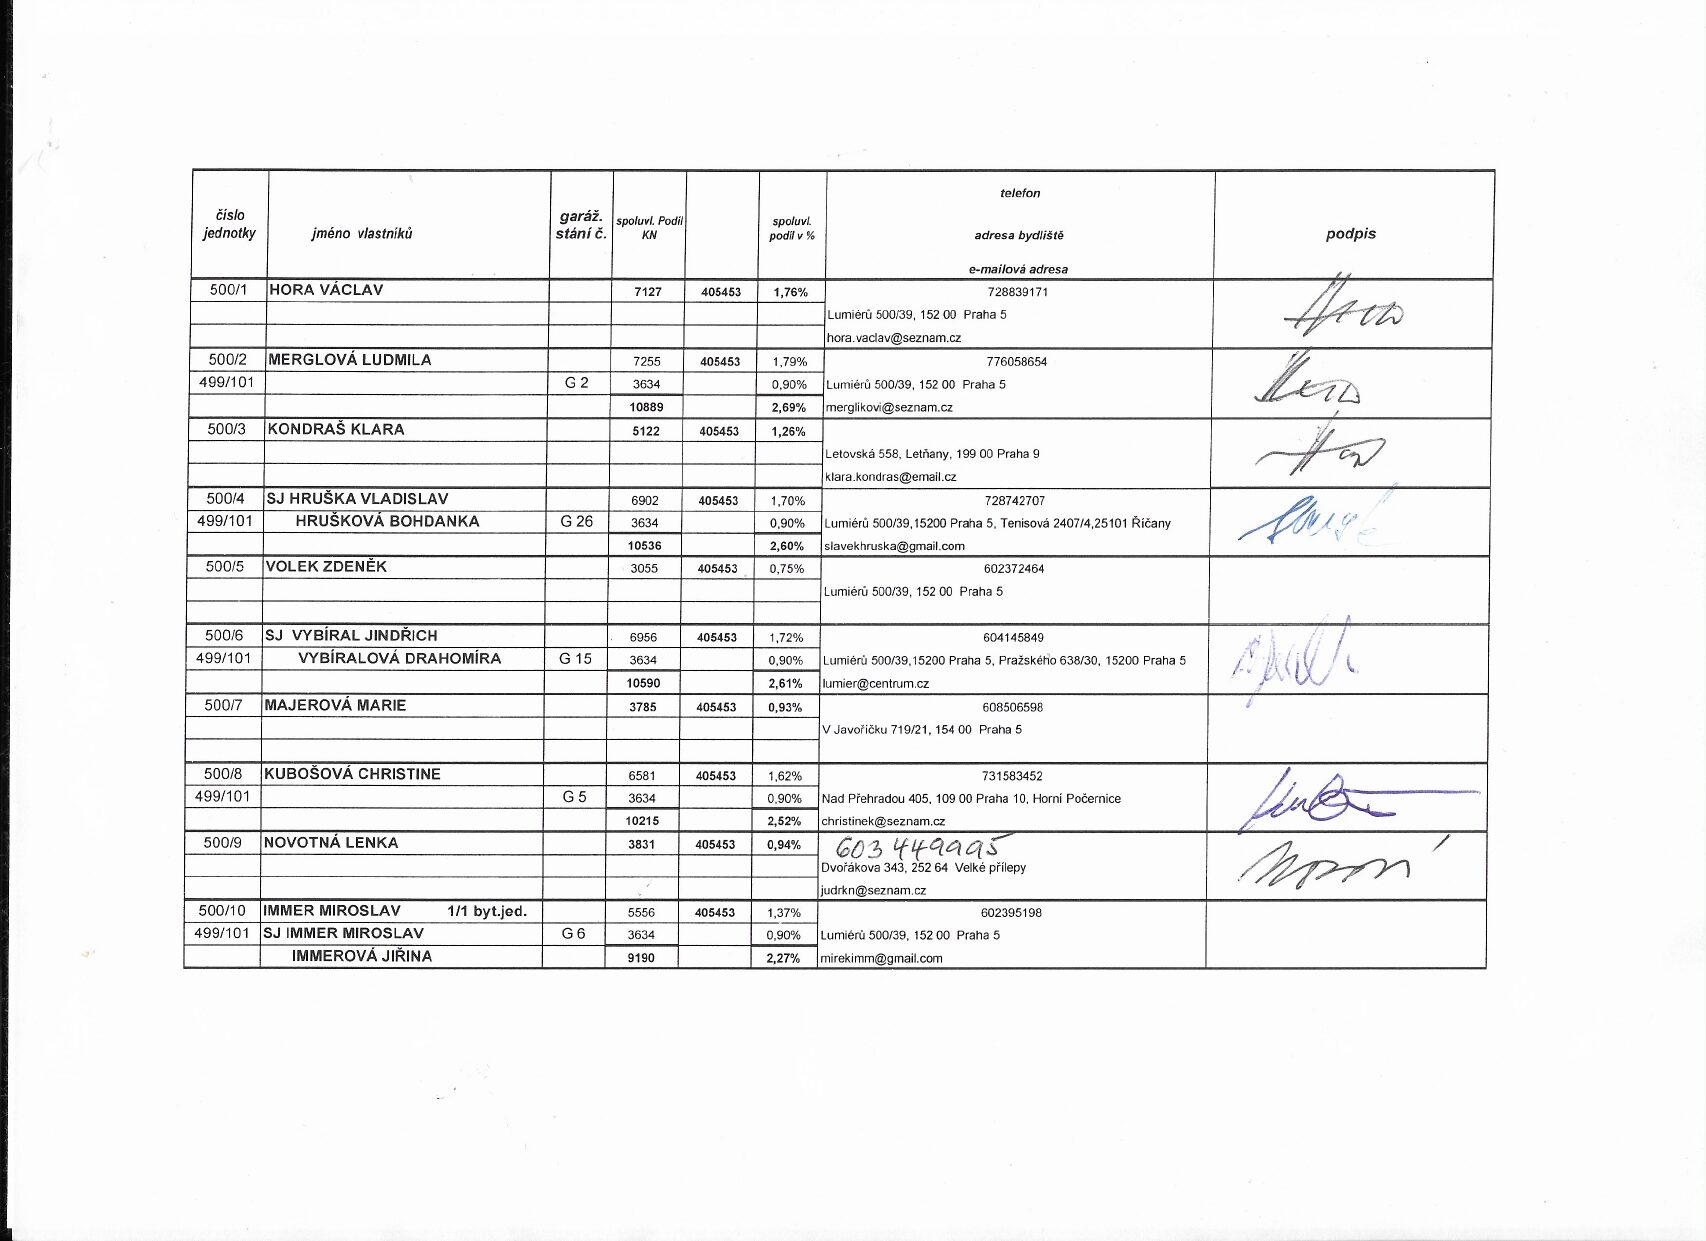 číslo jednotky jméno vlastníků garáž. stání č. spoluvl. Podíl KN spoluvl. podíl v % telefon adresa bydliště e-mailová adresa podpis
500/1 HORA VÁCLAV 7127 405453 1,76% 728839171
Lumiérů 500/39, 152 00 Praha 5
hora.vaclav@seznam.cz
500/2 MERGLOVÁ LUDMILA 7255 405453 1,79% 776058654
499/101 G 2 3634 0,90% Lumiérů 500/39, 152 00 Praha 5
10889 2,69% merglikovi@seznam.cz
500/3 KONDRAŠ KLARA 5122 405453 1,26%
Letovská 558, Letňany, 199 00 Praha 9
klara.kondras@email.cz
500/4 SJ HRUŠKA VLADISLAV 6902 405453 1,70% 728742707
499/101 HRUŠKOVÁ BOHDANKA G 26 3634 0,90% Lumiérů 500/39,15200 Praha 5, Tenisová 2407/4,25101 Říčany
10536 2,60% slavekhruska@gmail.com
500/5 VOLEK ZDENĚK 3055 405453 0,75% 602372464
Lumiérů 500/39, 152 00 Praha 5
500/6 SJ VYBÍRAL JINDŘICH 6956 405453 1,72% 604145849
499/101 VYBÍRALOVÁ DRAHOMÍRA G 15 3634 0,90% Lumiérů 500/39,15200 Praha 5, Pražského 638/30, 15200 Praha 5
10590 2,61% lumier@centrum.cz
500/7 MAJEROVÁ MARIE 3785 405453 0,93% 608506598
V Javoříčku 719/21, 154 00 Praha 5
500/8 KUBOŠOVÁ CHRISTINE 6581 405453 1,62% 731583452
499/101 G 5 3634 0,90% Nad Přehradou 405, 109 00 Praha 10, Horní Počernice
10215 2,52% christinek@seznam.cz
500/9 NOVOTNÁ LENKA 3831 405453 0,94% 603 449995
Dvořákova 343, 252 64 Velké přílepy
judrkn@seznam.cz
500/10 IMMER MIROSLAV 1/1 byt.jed. 5556 405453 1,37% 602395198
499/101 SJ IMMER MIROSLAV G 6 3634 0,90% Lumiérů 500/39, 152 00 Praha 5
IMMEROVÁ JIŘINA 9190 2,27% mirekimm@gmail.com